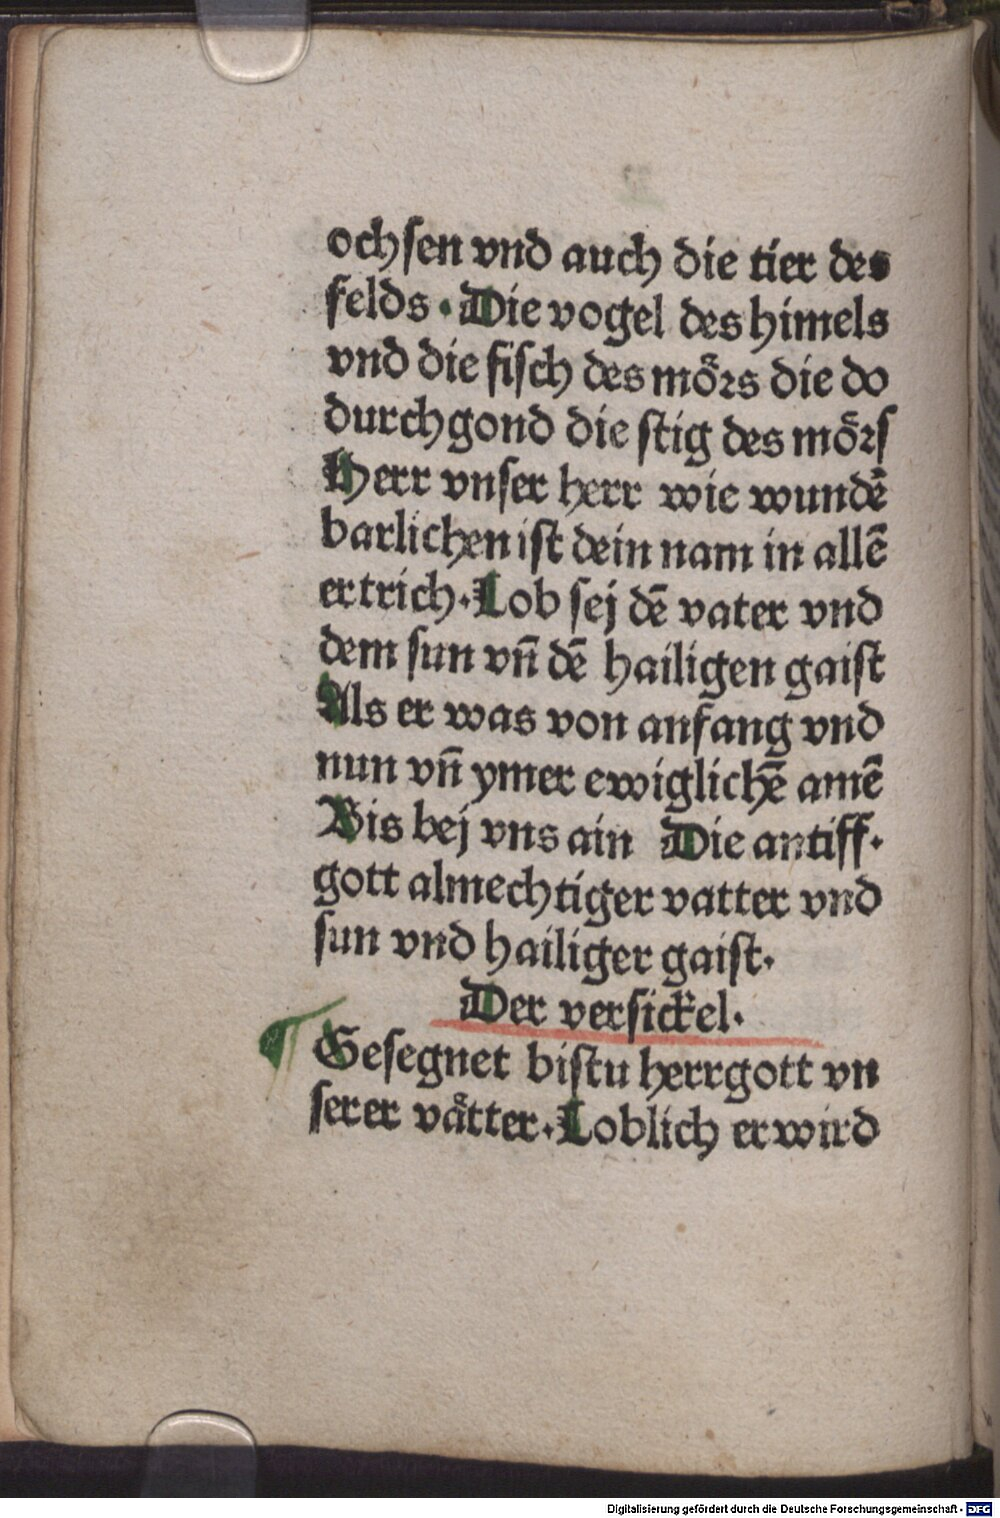 ochsen vnd auch die tier des
felds · Die vogel des himels
vnd die fisch des moͤrs die do
durchgond die stig des moͤrs
Herr vnser herr wie wundē
barlichen ist dein nam in allē
ertrich · Lob sej dē vater vnd
dem sun vn̄ dē hailigen gaist
Als er was von anfang vnd
nun vn̄ ymer ewiglichē amē
Bis bej vns ain Die antiff ·
gott almechtiger vatter vnd
sun vnd hailiger gaist ·
Der versickel ·
Gesegnet bistu herrgott vn
serer vaͤtter · Loblich er wird
Digitalisierung gefördert durch die Deutsche Forschungsgemeinschaft - DFG